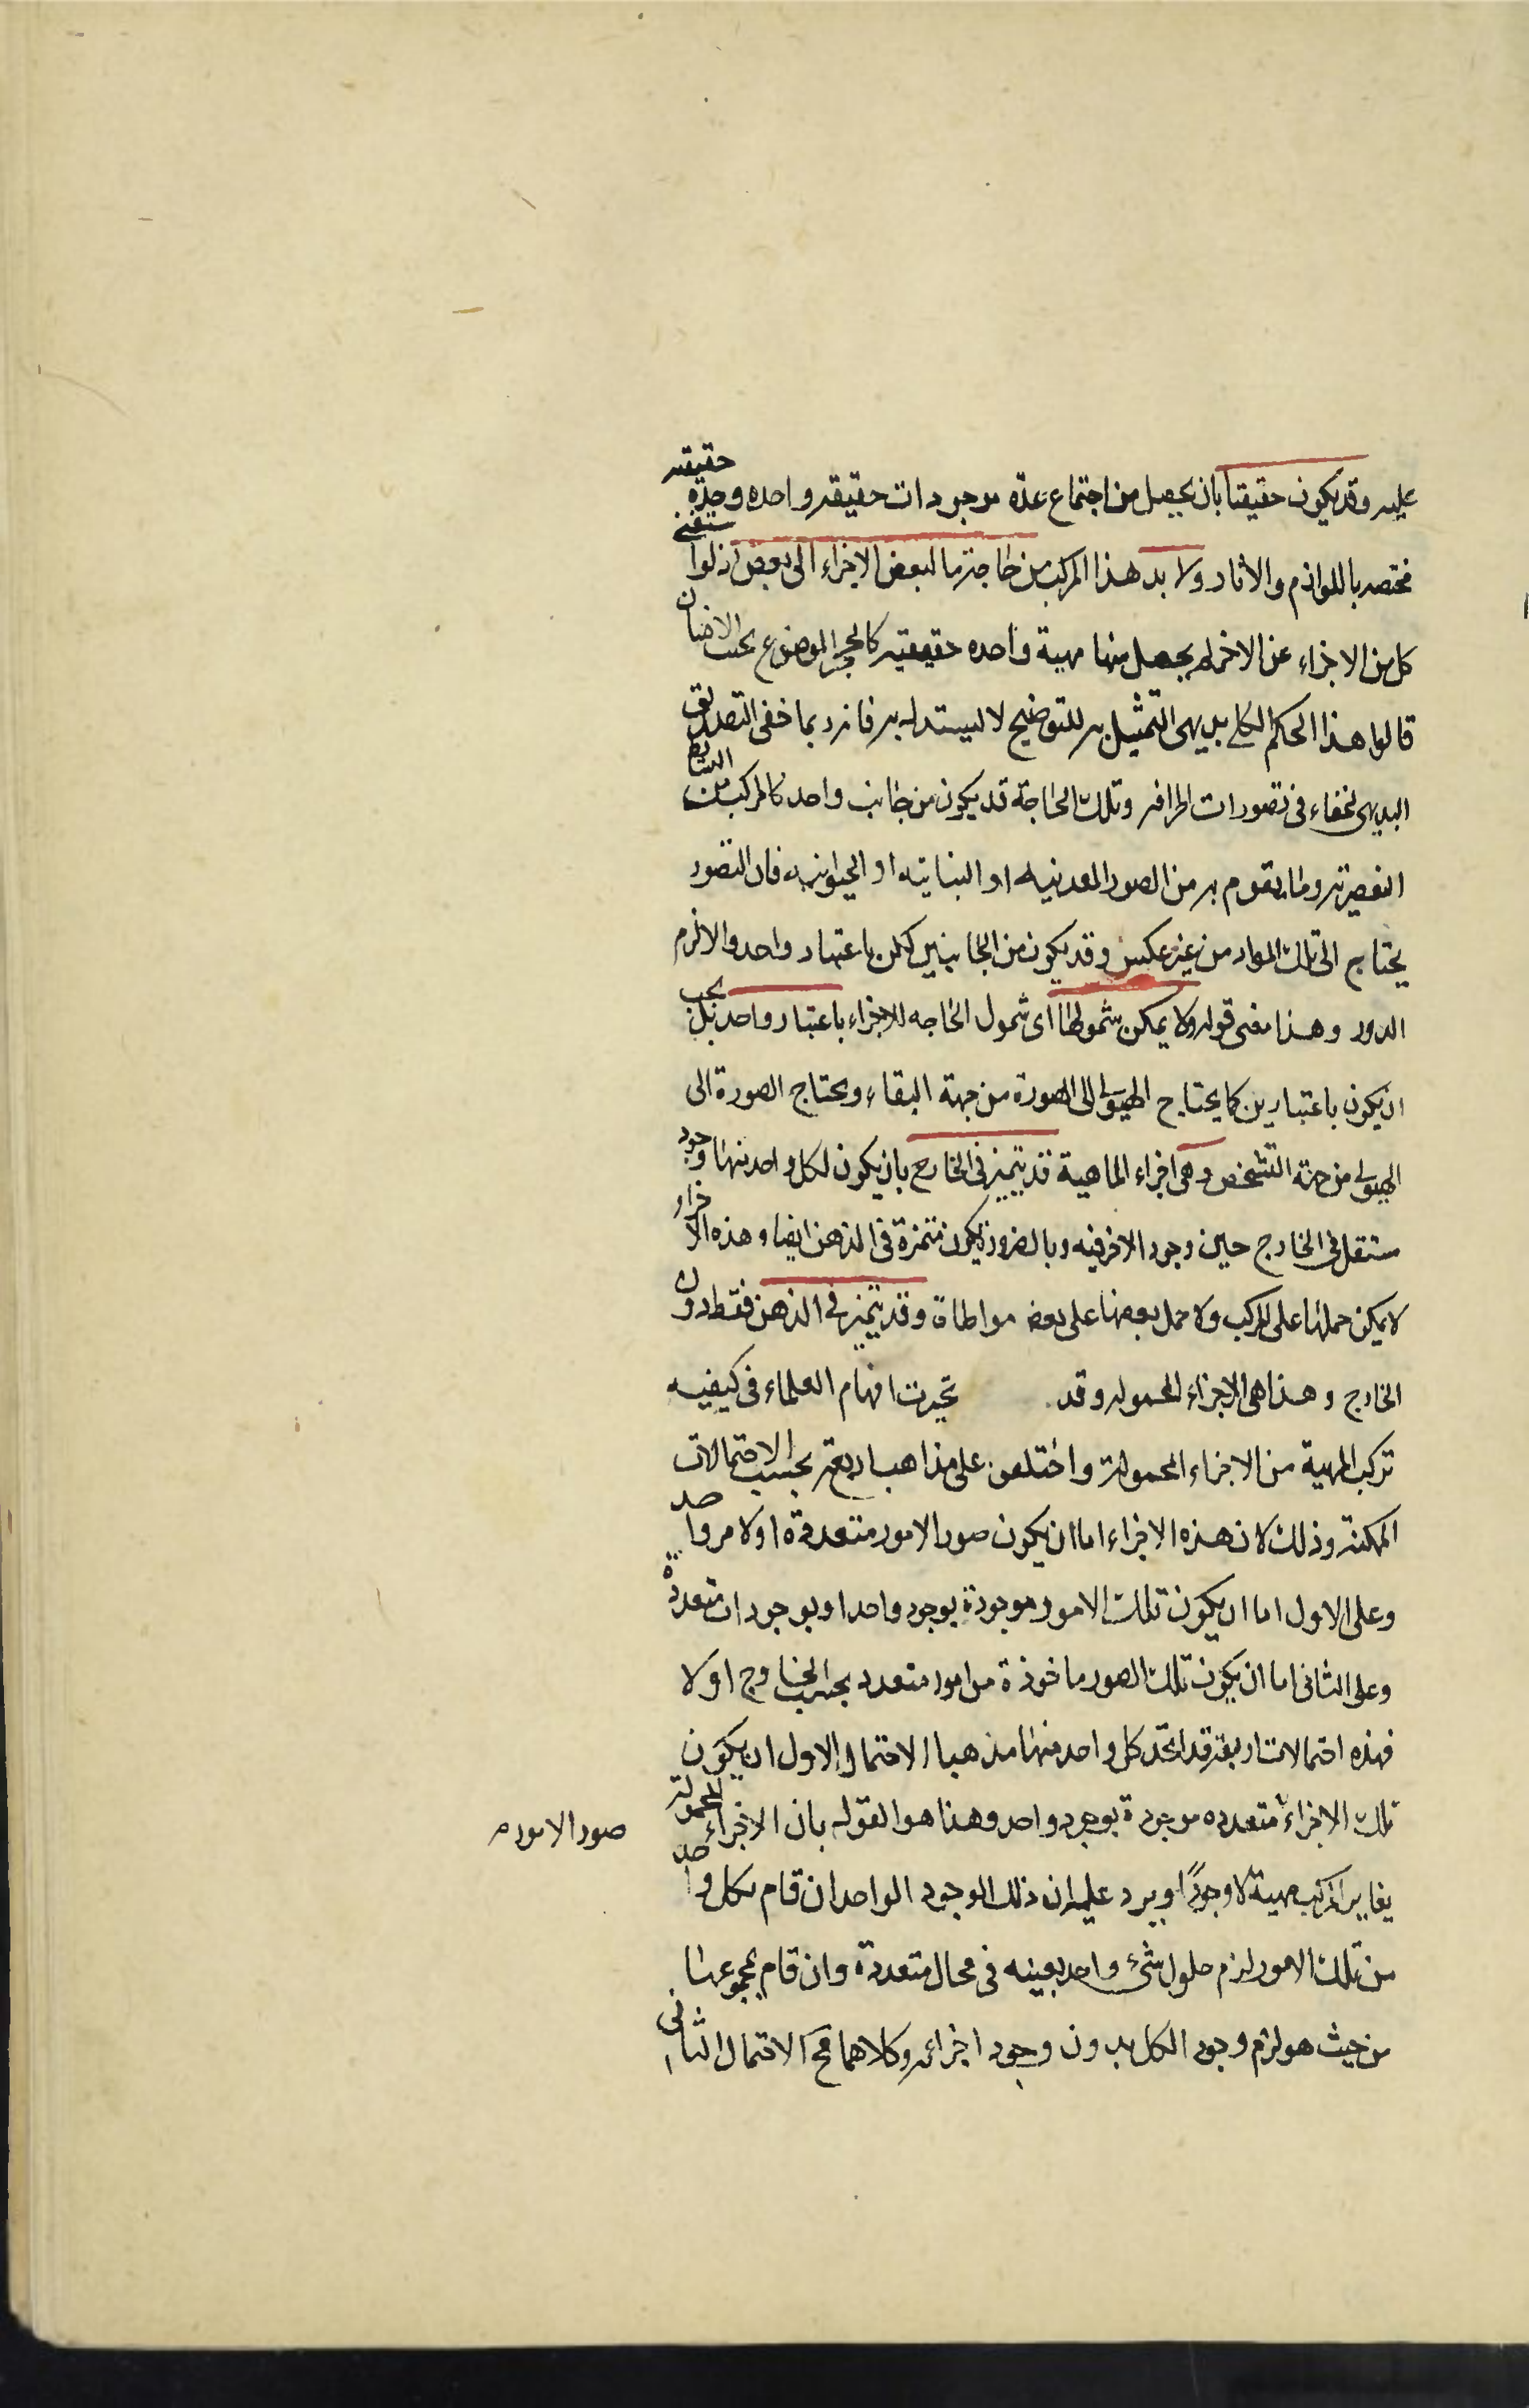 عليه وقد يكون حقيقيا بان يحصل من اجتماع عدّه موجودات حقيقه واحده وحدة حقيقيه
مختصه باللوازم والاثار ولا بد هذا المركب من حاجة ما لبعض الاجزاء الى بعض اذ لو استغنى
كل من الاجزاء عن الاخر لم يحصل منها مهية واحده حقيقيه كالحجر الموضوع بجنب الانسان
قالوا هذا الحكم الكلى بديهى التمثيل به للتوضيح لا ليستدل به فانه ربما خفى التصديق
البديهى لخفاء فى تصورات اطرافه وتلك الحاجة قد يكون من جانب واحد كالمركب من البسائط
العنصرية وما يقوم به من الصور المعدنيه او النباتيه او الحيوانيه فان الصور
يحتاج الى تلك المواد من غير عكس وقد يكون من الجانبين لكن لا باعتبار واحد والا لزم
الدور وهذا معنى قوله ولا يمكن شمولها اى شمول الحاجه للاجزاء باعتبار واحد بل يجب
ان يكون باعتبارين كما يحتاج الهيولى الى الصورة من جهة البقاء ويحتاج الصورة الى
الهيولى من جهة التشخص وهى اجزاء الماهية قد يتميز فى الخارج بان يكون لكل واحد منها وجود
مستقل فى الخارج حين وجود الاخر فيه وبالضرورة يكون متميزة فى الذهن ايضا وهذه الاجزاء
لا يمكن حملها على المركب ولا حمل بعضها على بعض مواطاة وقد يتميز فى الذهن فقط دون
الخارج وهذا هى الاجزاء المحموله وقد تحيرت افهام العلماء فى كيفيه
تركب المهية من الاجزاء المحمولة واختلفوا على مذاهب اربعة بحسب الاحتمالات
الممكنة وذلك لان هذه الاجزاء اما ان يكون صور الامور متعددة او لامر واحد
وعلى الاول اما ان يكون تلك الامور موجودة بوجود واحد او بوجودات متعددة
وعلى الثانى اما ان يكون تلك الصور ماخوذة من امور متعدده بحسب الخارج او لا
فهذه احتمالات اربعة قد اتخذ كل واحد منها مذهبا الاحتمال الاول ان يكون
تلك الاجزاء متعدده موجودة بوجود واحد وهذا هو القول بان الاجزاء المحمولة
صور الامور
يغاير المركب مهية لا وجودًا ويرد عليه ان ذلك الوجود الواحد ان قام بكل واحد
من تلك الامور لزم حلول شئ واحد بعينه فى محال متعددة وان قام بمجموعها
من حيث هو لزم وجود الكل بدون وجود اجزائه وكلاهما مح الاحتمال الثانى